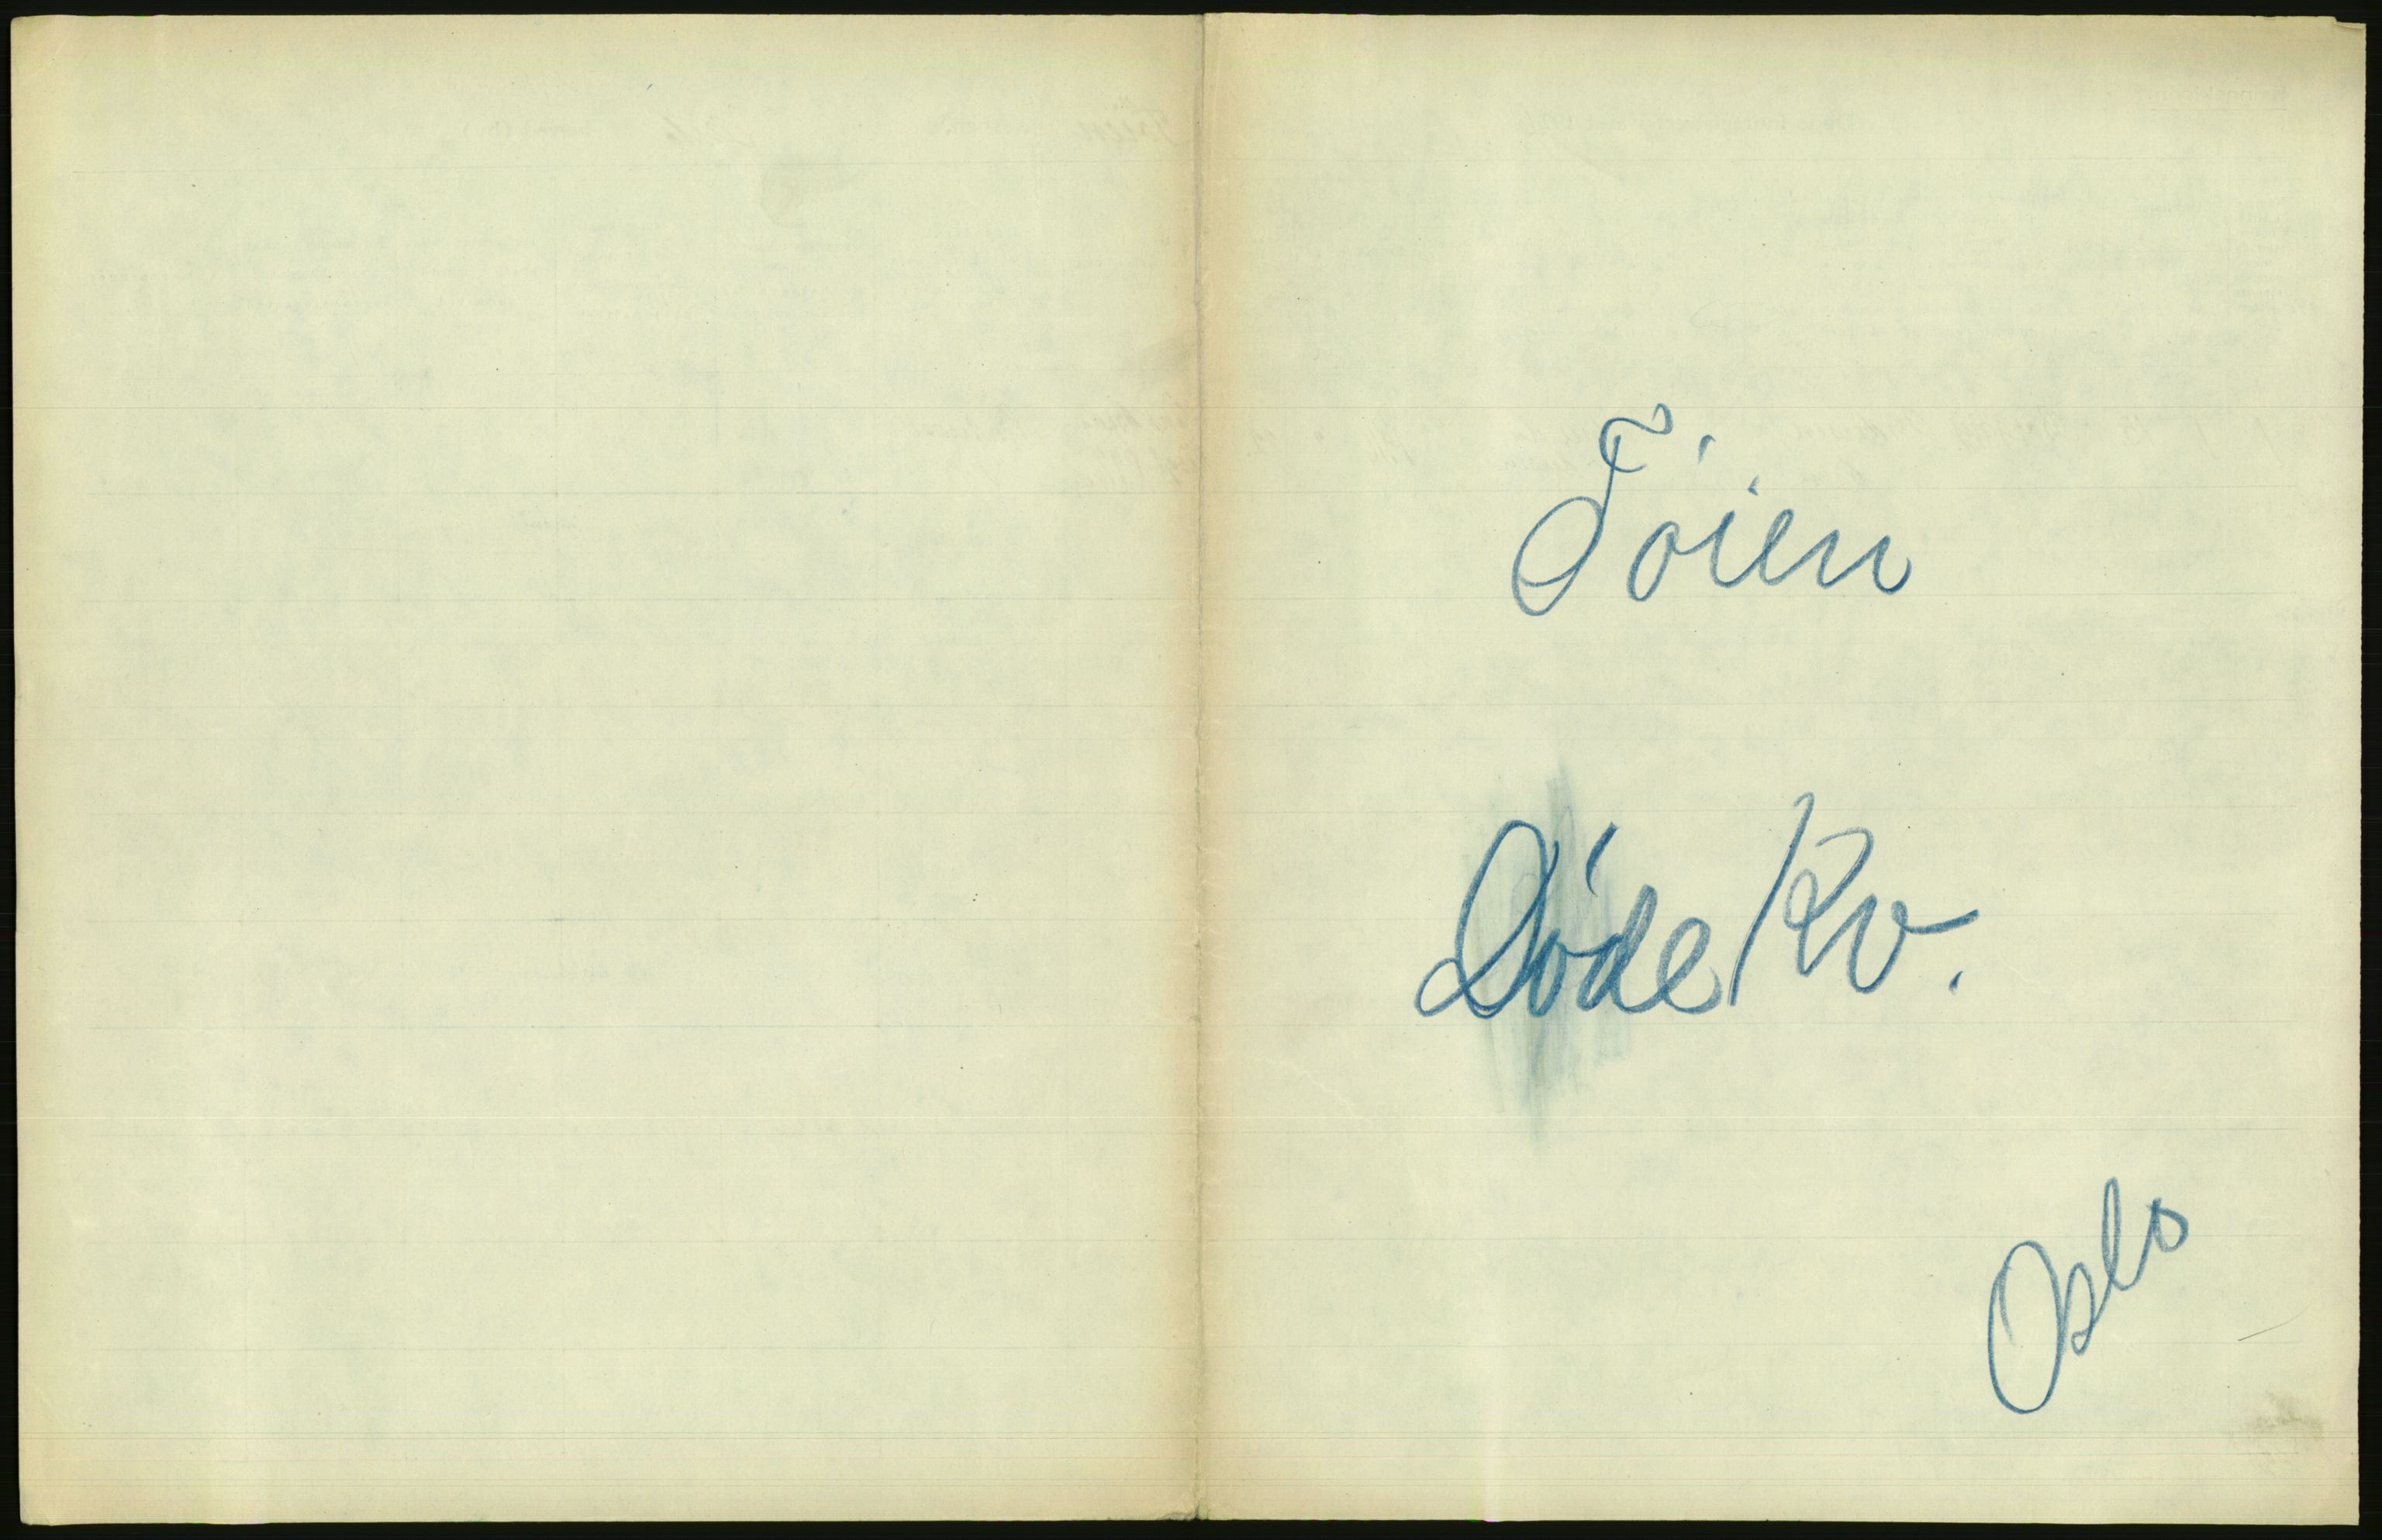 Tóien
Dóde Kv.
Oslo